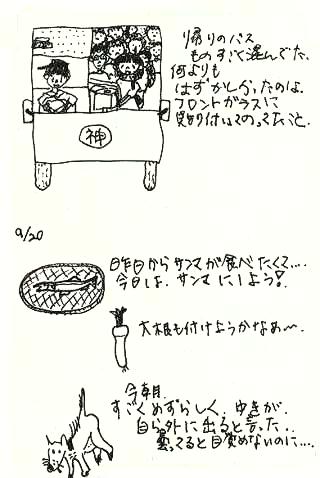 帰りのバス
ものすごく混んでた。
何よりも
はずかしかったのは、
フロントガラスに
貼り付いてのってたこと。
神
9/20
昨日からサンマが食べたくて‥‥
今日は、サンマにしよう!
大根も付けようかなあ〜。
今朝、
すごくめずらしく、ゆきが、
自ら外に出ると言った。
曇ってると目覚めないのに‥‥